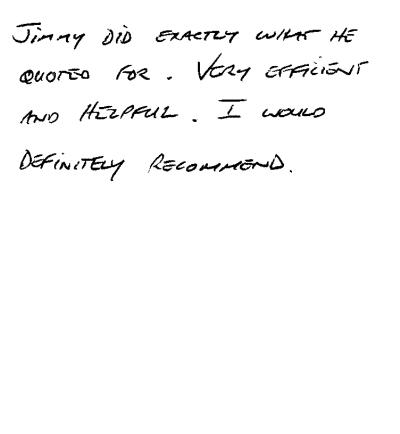 Jimmy did exactly what he
quoted for. Very efficient
and helpful. I would
definitely recommend.